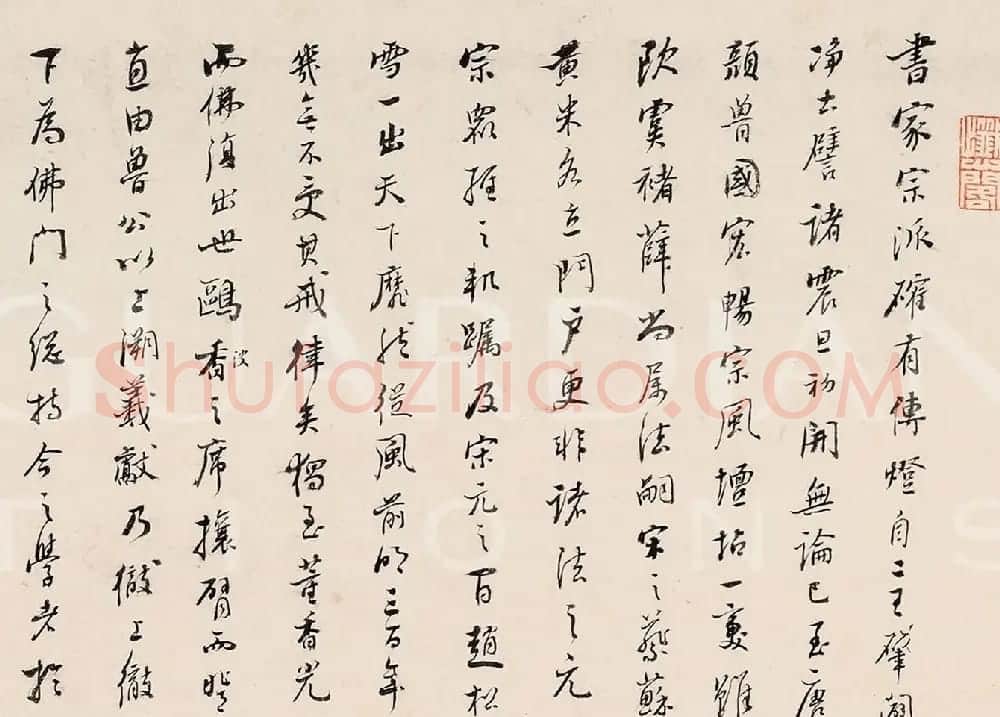 書家宗派確有傳燈自二王肇開
淨土譬諸震旦初開無論已至唐
顏魯國宏暢宗風壇坫一變雖
歐虞褚薛尚屬法嗣宋之蔡蘇
黃米各立門戶更非諸法之元
宗罷 之 躅及宋元之間趙松
雪一出天下靡然從風前明三百年
幾無不受其戒律矣獨至董香光
而佛復出世鷗香之席攘臂而登
波
直由魯公以上溯羲獻乃徹上徹
下為佛門之總持今之學者於
Shufaziliao.COM
GUARDIAN